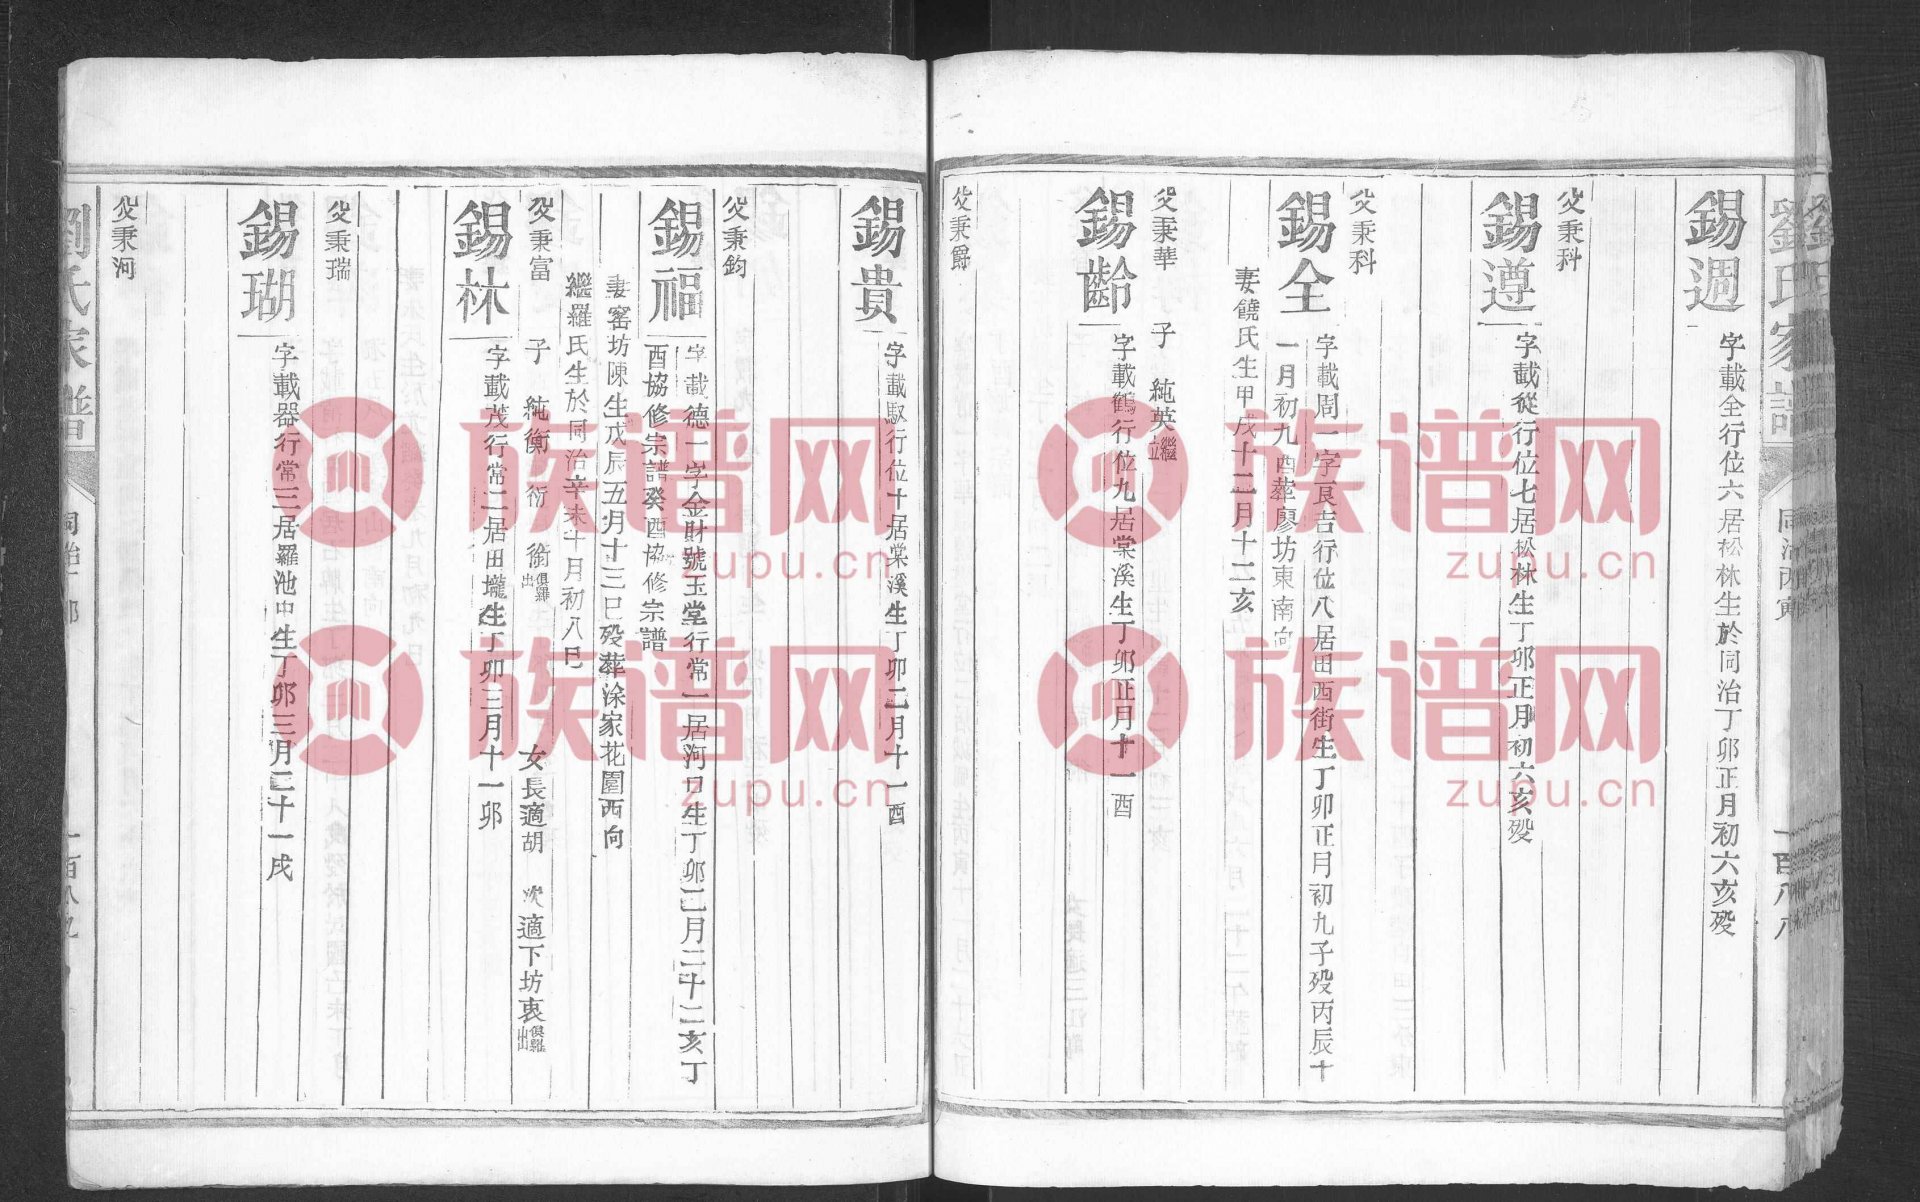 劉氏家譜
同治丙寅
一百八八
錫週
字載全行位六居松林生於同治丁卯正月初六亥歿
父秉科
錫遵
字載從行位七居松林生丁卯正月初六亥歿
父秉科
錫全
字載周一字良吉行位八居田西街生丁卯正月初九子歿丙辰十
一月初九酉葬廖坊東南向
妻饒氏生甲戌十二月十二亥
父秉華
子 純英繼立
錫齡
字載鶴行位九居棠溪生丁卯正月十一酉
父秉爵
錫貴
字載馭行位十居棠溪生丁卯二月十一酉
父秉鈞
錫福
字載德一字金財號玉堂行常一居河口生丁卯二月二十二亥丁
酉協修宗譜癸酉協修宗譜
妻窑坊陳生戊辰五月十三巳歿葬涂家花園西向
繼羅氏生於同治辛未十月初八巳
父秉富
子 純衡 衍 衛俱羅出
女長適胡 次適下坊衷俱羅出
錫林
字載茂行常二居田壠生丁卯三月十一卯
父秉瑞
錫瑚
字載器行常三居羅池中生丁卯三月二十一戌
父秉河
劉氏家譜
同治丁卯
一百八九
族谱网
zupu.cn
族谱网
zupu.cn
族谱网
zupu.cn
族谱网
zupu.cn